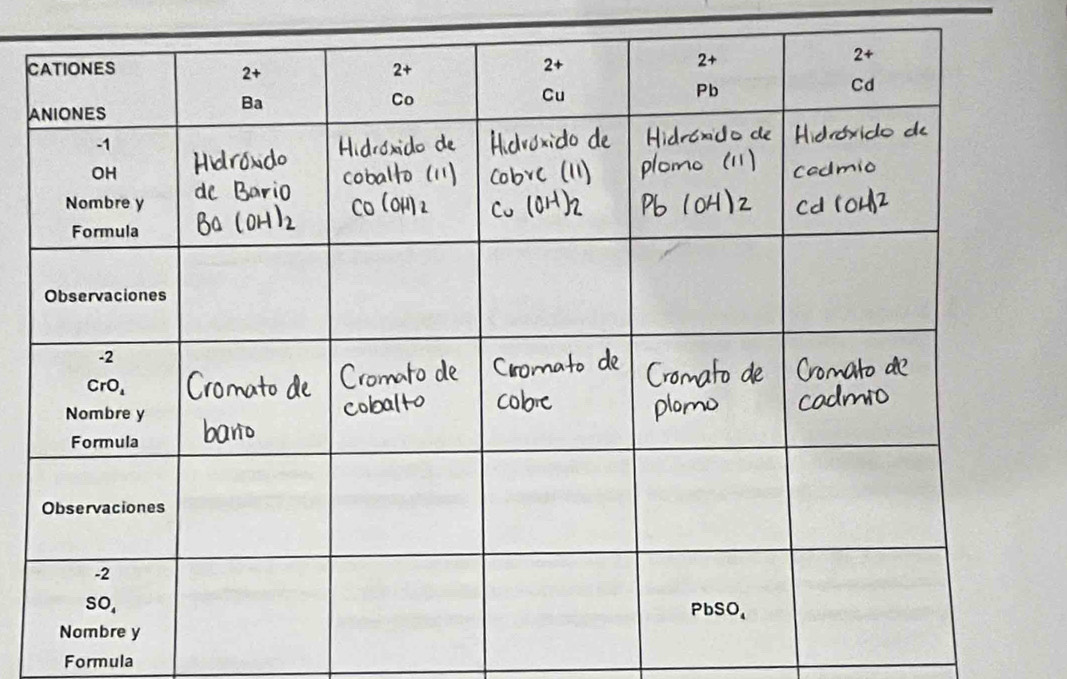 CATIONES
2+ 2+ 2+ 2+ 2+
Ba Co Cu Pb Cd
ANIONES
-1
OH
Nombre y
Formula
Hidróxido
de Bario
Ba (OH)2
Hidróxido de
cobalto (11)
CO (OH)2
Hidróxido de
cobre (11)
Cu (OH)2
Hidróxido de
plomo (11)
Pb (OH)2
Hidróxido de
cadmio
Cd (OH)2
Observaciones
-2
CrO4
Nombre y
Formula
Cromato de
bario
Cromato de
cobalto
Cromato de
cobre
Cromato de
plomo
Cromato de
cadmio
Observaciones
-2
SO4
Nombre y
Formula
PbSO4